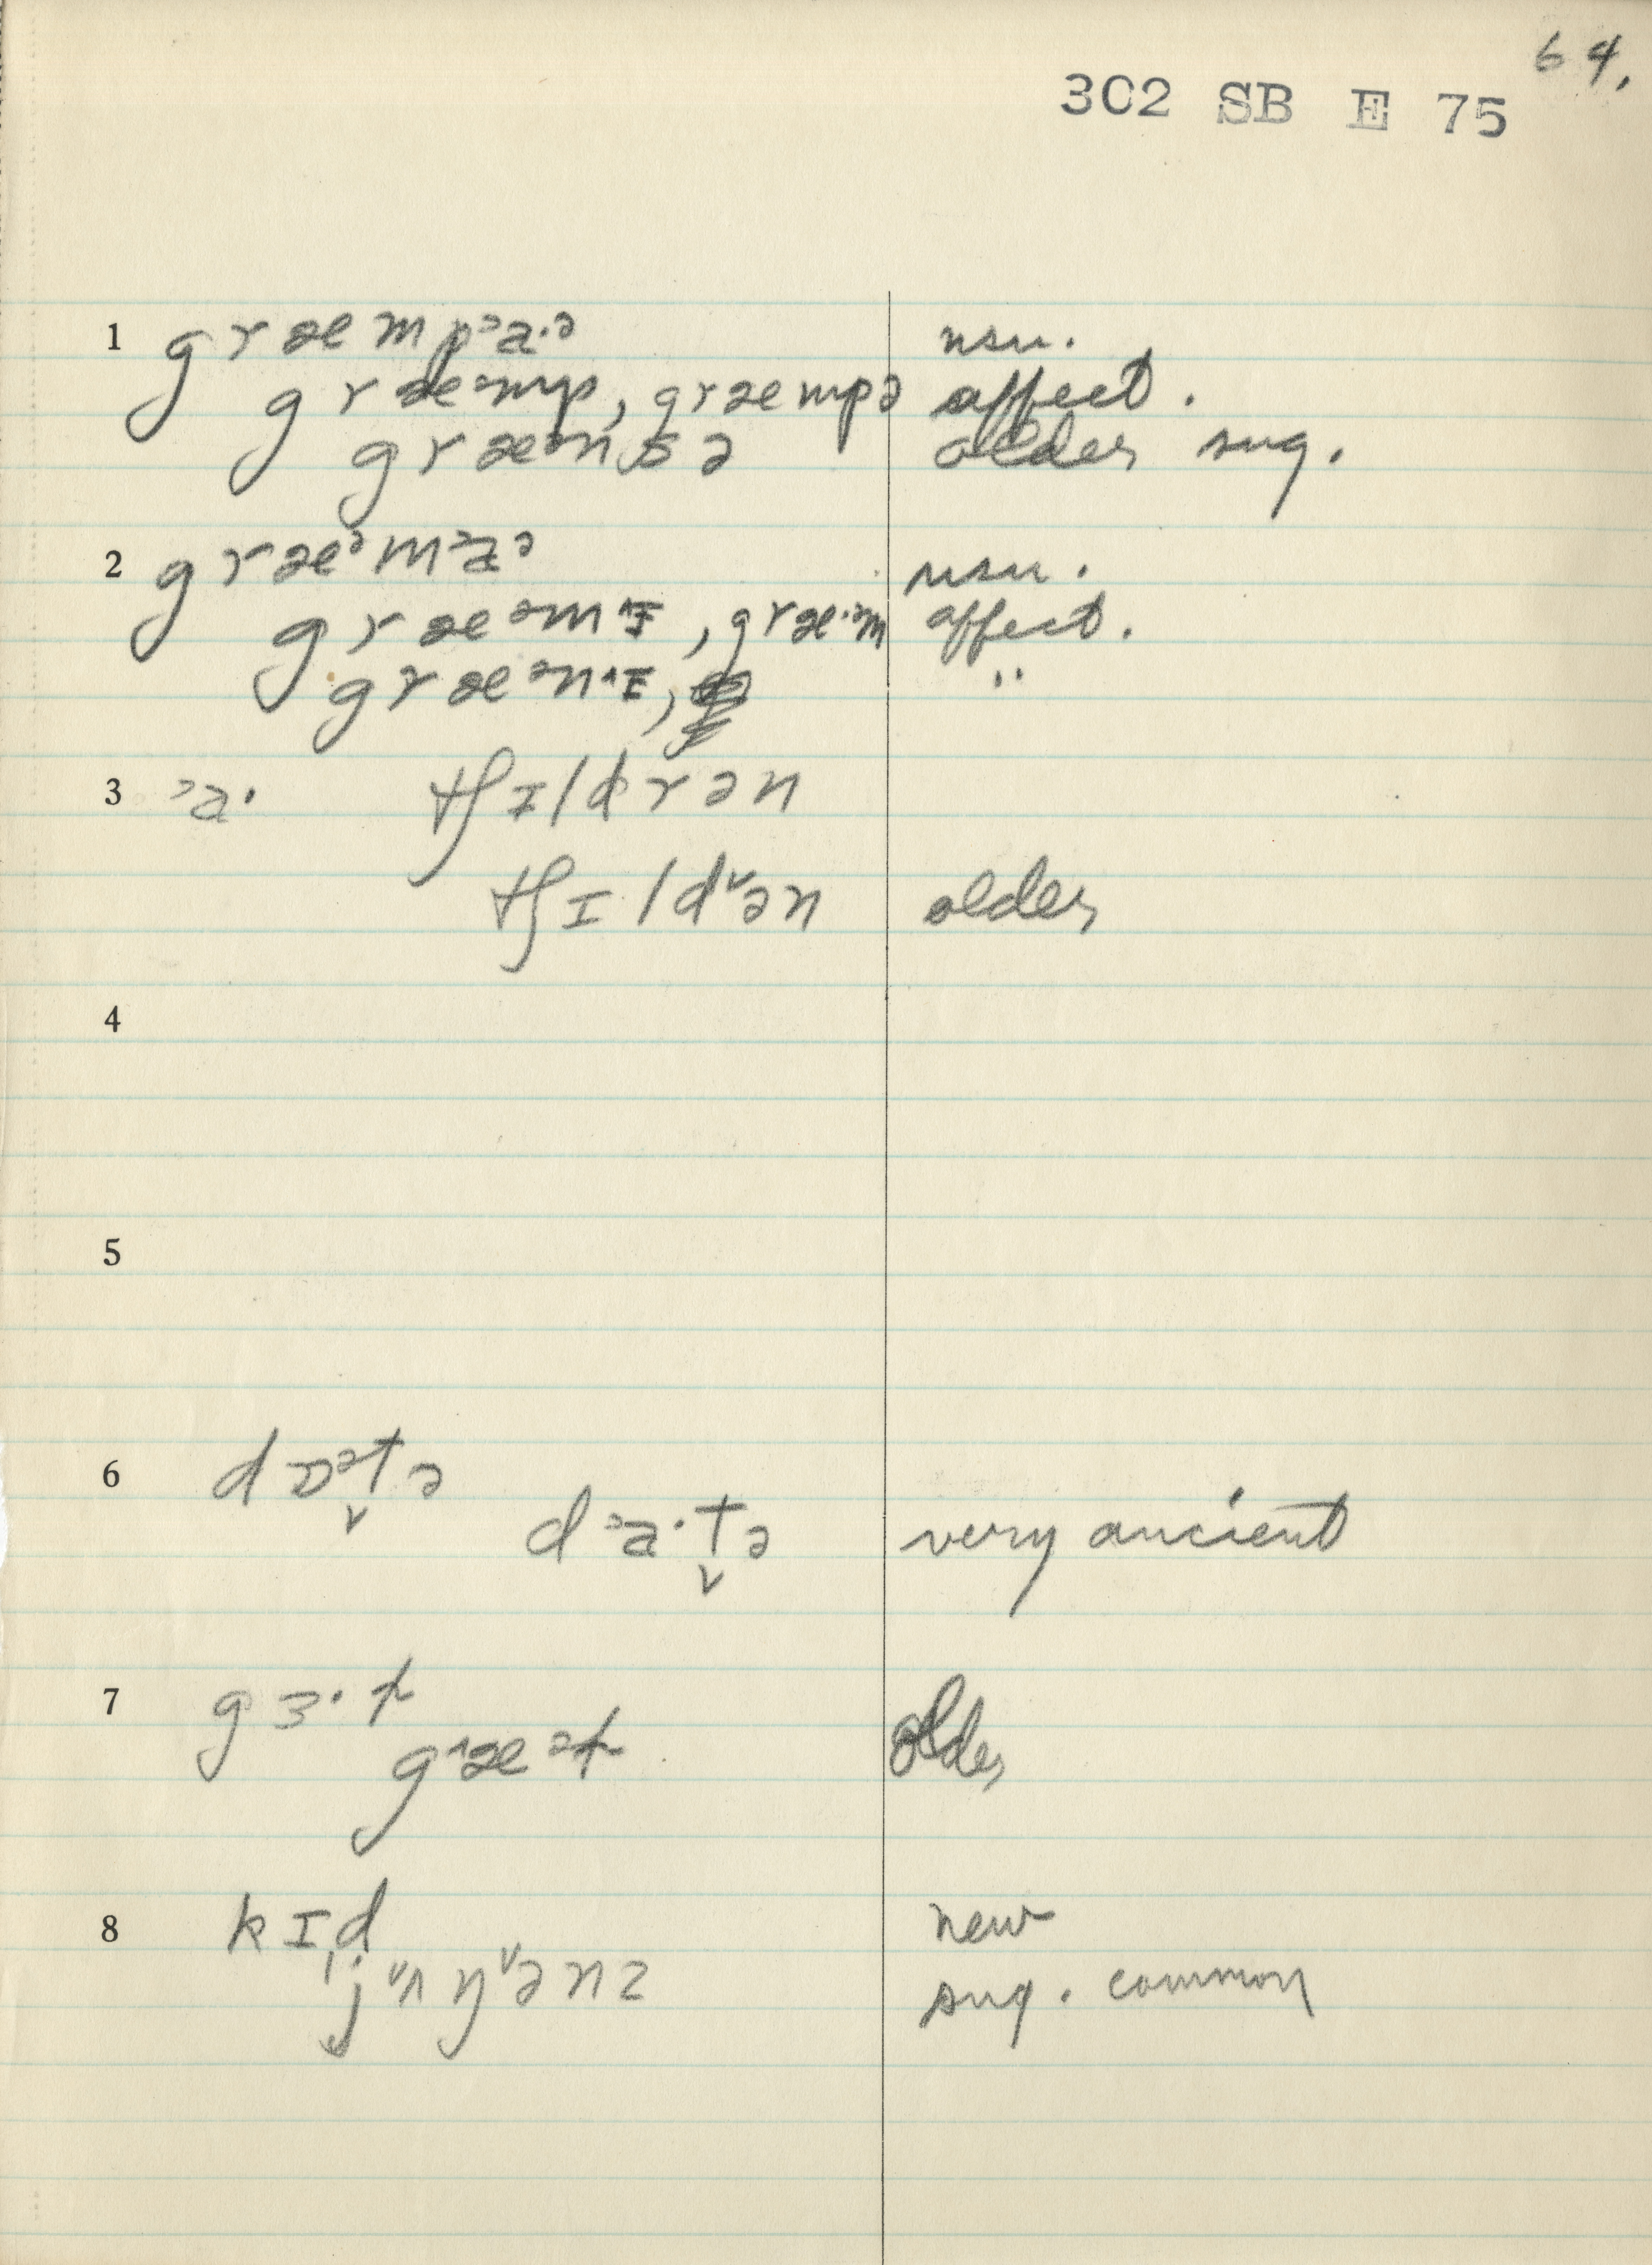 64.
302 SB E 75
1 græmpᵊa·ᵊ usu.
græᵊmp, græmpə affect.
græᵊnsə older sug.
2 græᵊmᵊaᵊ usu.
græᵊm^ɪ, græ·ᵊm affect.
græᵊn^ɪ, "
3 ᵊa· tʃɪldrən
tʃɪldᵛən older
4
5
6 dɒᵊt̬ə
dᵊa·t̬ə very ancient
7 gɜ·ɫ
g^æᵊɫ older
8 kɪd new
jᵛʌŋᵛənz sug. common